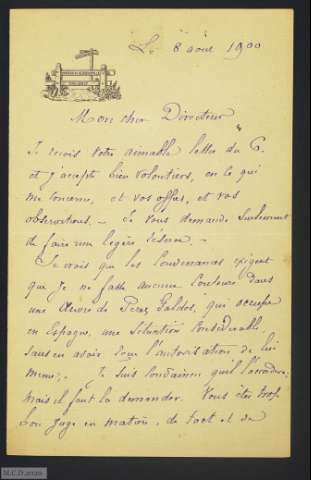 Le 8 août 1900
Mon cher Directeur
Je reçois votre aimable lettre du 6.
et j'accepte bien volontiers, en ce qui
me concerne, et vos offres, et vos
observations. — Je vous demande seulement
de faire une légère réserve. —
Je crois que les convenances exigent
que je ne fasse aucune coupure dans
une Œuvre de Perez Galdos, qui occupe
en Espagne, une situation considérable,
sans en avoir reçu l'autorisation de lui
même. Je suis convaincu qu'il l'accordera;
mais il faut la demander. Vous êtes trop
bon juge en matière de tact et de
M.C.D.2020